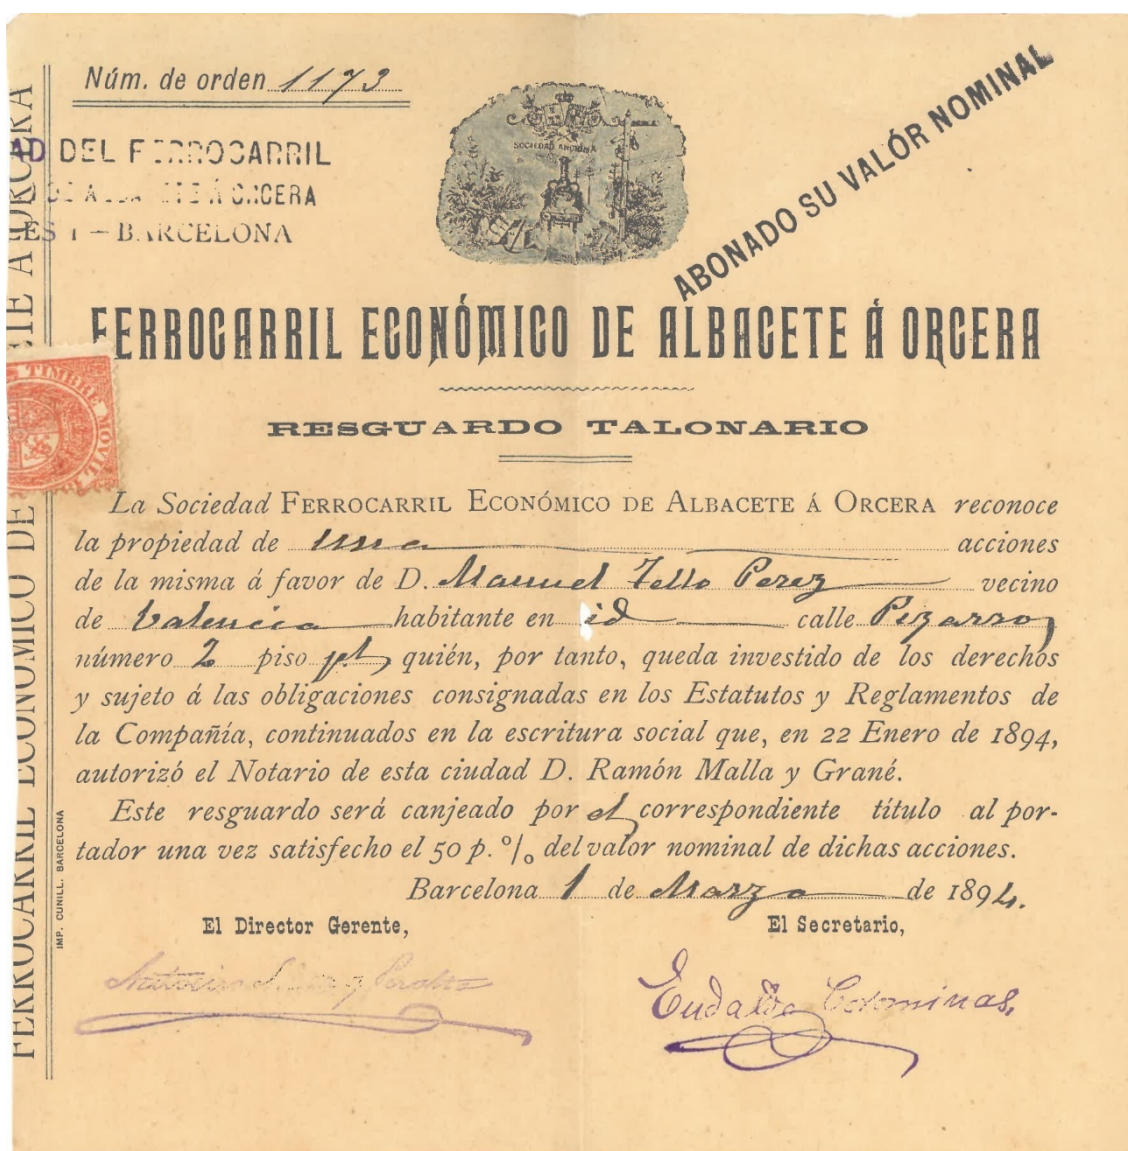 Núm. de orden 1173
DEL FERROCARRIL
Á ORCERA
1 — BARCELONA
SOCIEDAD ANÓNIMA
ABONADO SU VALÓR NOMINAL
FERROCARRIL ECONÓMICO DE ALBACETE Á ORCERA
RESGUARDO TALONARIO
TIMBRE MOVIL
La Sociedad FERROCARRIL ECONÓMICO DE ALBACETE Á ORCERA reconoce
la propiedad de una acciones
de la misma á favor de D. Manuel Tello Perez vecino
de Valencia habitante en id calle Pizarro
número 2 piso pl, quién, por tanto, queda investido de los derechos
y sujeto á las obligaciones consignadas en los Estatutos y Reglamentos de
la Compañía, continuados en la escritura social que, en 22 Enero de 1894,
autorizó el Notario de esta ciudad D. Ramón Malla y Grané.
Este resguardo será canjeado por el correspondiente título al por-
tador una vez satisfecho el 50 p. % del valor nominal de dichas acciones.
Barcelona 1 de Marzo de 1894.
El Director Gerente,
El Secretario,
Eudaldo Colominas.
FERROCARRIL ECONÓMICO DE ETE A ORCERA
IMP. CUNILL. BARCELONA